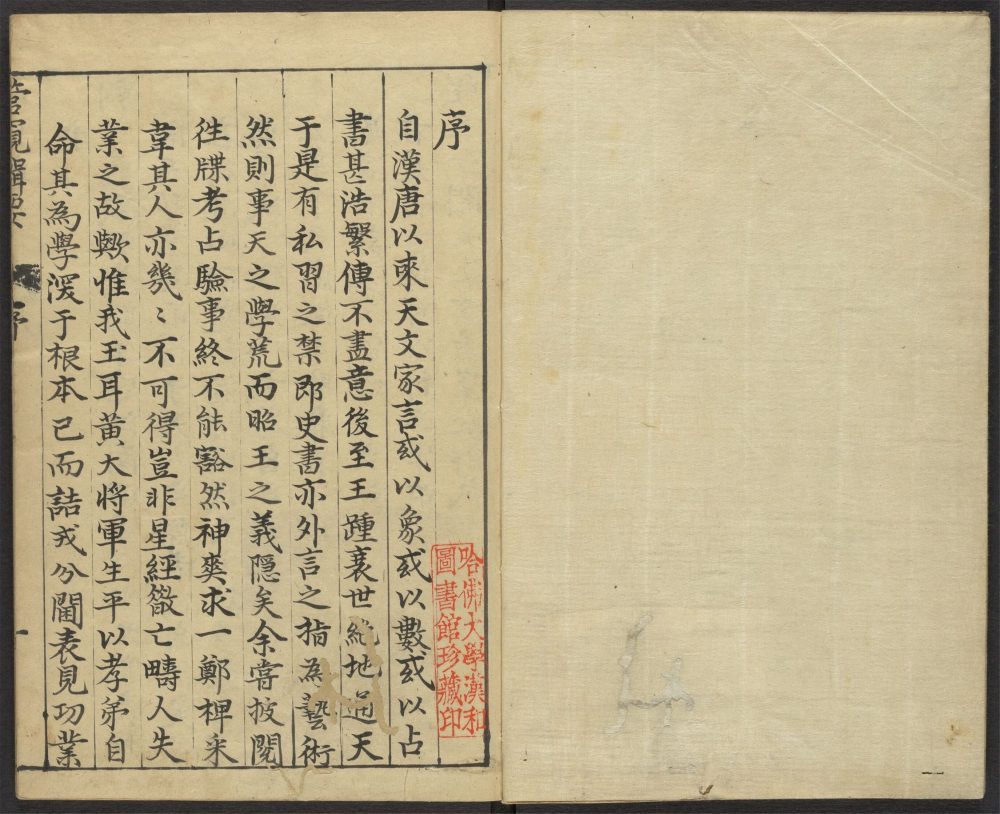 序
自漢唐以來天文家言或以象或以數或以占
書甚浩繁傳不盡意後至王踵衰世絶地通天
于是有私習之禁即史書亦外言之指為藝術
然則事天之學荒而昭王之義隱矣余嘗披閱
徃牒考占驗事終不能豁然神爽求一鄭裨釆
韋其人亦㡬〻不可得豈非星經散亡疇人失
業之故歟惟我玉耳黄大將軍生平以孝弟自
命其為學深于根本已而詰戎分閫表見功業
管窺輯要
序
一
哈佛大學漢和
圖書館珍藏印